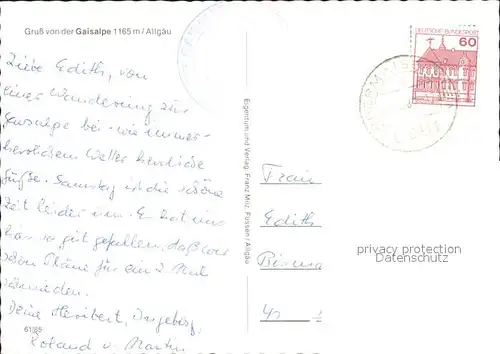 Gruß von der Gaisalpe 1165 m / Allgäu
Liebe Edith, von
einer Wanderung zur
Gaisalpe bei - wie immer -
herrlichem Wetter herzliche
Grüße. Samstag ist die schöne
Zeit leider um. Es hat uns
hier so gut gefallen, daß wir
schon Pläne für ein 2. Mal
schmieden.
Deine Heribert, Ingeborg,
Roland u. Martin
61/65
Eigentum und Verlag: Franz Milz, Füssen / Allgäu
DEUTSCHE BUNDESPOST
60
Frau
Edith
privacy protection
Datenschutz